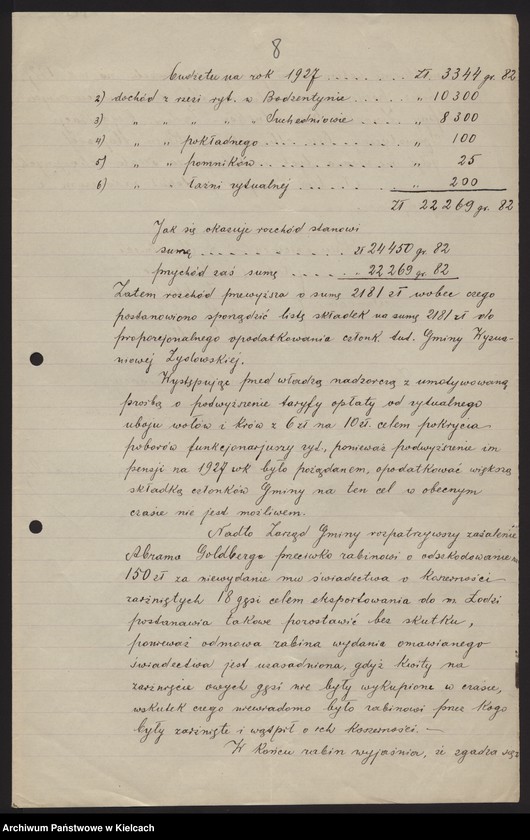 8
budżetu na rok 1927 . . . . . . . . zł. 3344 gr. 82
2) dochód z rzezi ryt. w Bodzentynie . . . . „ 10300
3) „ „ „ „ Suchedniowie . . . . „ 8300
4) „ „ pokładnego . . . . . . . . . . . „ 100
5) „ „ pomników . . . . . . . . . . . „ 25
6) „ „ łaźni rytualnej . . . . . . . „ 200
Zł 22269 gr. 82
Jak się okazuje rozchód stanowi
sumę . . . . . . . . . . . zł 24450 gr. 82
przychód zaś sumę . . . . . . 22269 gr. 82
Zatem rozchód przewyższa o sumę 2181 zł wobec czego
postanowiono sporządzić listę składek na sumę 2181 zł do
proporcjonalnego opodatkowania członk. tut. Gminy Wyzna-
niowej Żydowskiej.
Występując przed władzą nadzorczą z umotywowaną
prośbą o podwyższenie taryfy opłaty od rytualnego
uboju wołów i krów z 6 zł na 10 zł. celem pokrycia
poborów funkcjonarjuszy ryt., ponieważ podwyższenie im
pensji na 1927 rok było pożądanem, opodatkować większą
składką członków Gminy na ten cel w obecnym
czasie nie jest możliwem.
Nadto Zarząd Gminy rozpatrzywszy zażalenie
Abrama Goldberga przeciwko rabinowi o odszkodowanie
150 zł za niewydanie mu świadectwa o koszerności
zarżniętych 18 gęsi celem eksportowania do m. Łodzi
postanawia takowe pozostawić bez skutku,
ponieważ odmowa rabina wydania omawianego
świadectwa jest uzasadniona, gdyż kwity na
zarżnięcie owych gęsi nie były wykupione w czasie,
wskutek czego niewiadomo było rabinowi przez kogo
były zarżnięte i wątpił o ich koszerności. —
W końcu rabin wyjaśnia, że zgadza się
Archiwum Państwowe w Kielcach